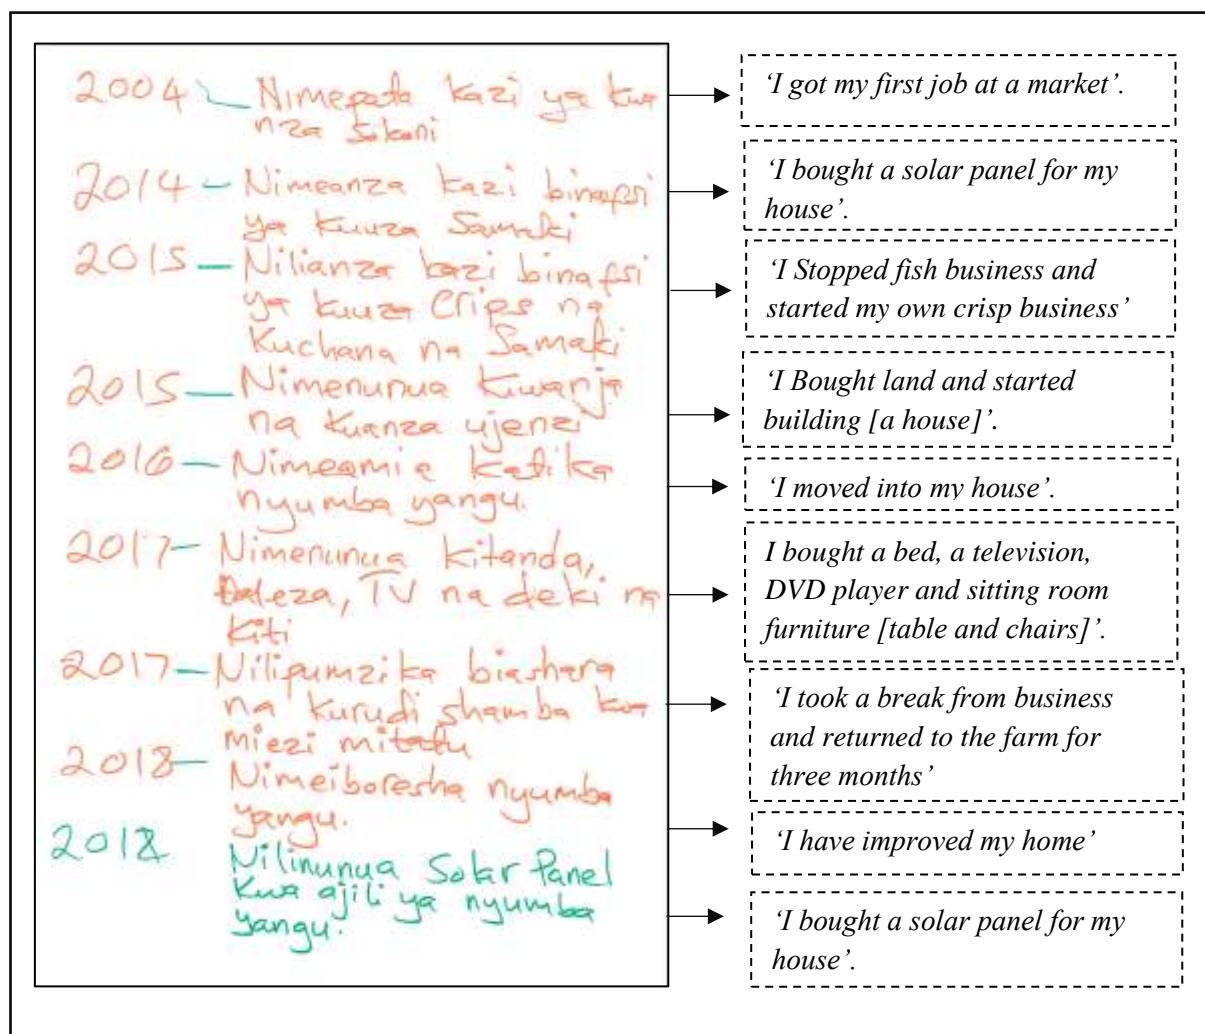 2004 – Nimepata kazi ya kwa
nza Sokoni
2014 – Nimeanza kazi binafsi
ya kuuza Samaki
2015 – Nilianza kazi binafsi
ya kuuza Crips na
Kuchana na Samaki
2015 – Nimenunua Kiwanja
na Kuanza ujenzi
2016 – Nimeamia katika
nyumba yangu.
2017 – Nimenunua kitanda,
TV na deki na
Kiti
2017 – Nilipumzika biashara
na kurudi shamba kwa
miezi mitatu
2018 – Nimeiboresha nyumba
yangu.
2018
Nilinunua Solar Panel
Kwa ajili ya nyumba
yangu.
‘I got my first job at a market’.
‘I bought a solar panel for my
house’.
‘I Stopped fish business and
started my own crisp business’
‘I Bought land and started
building [a house]’.
‘I moved into my house’.
I bought a bed, a television,
DVD player and sitting room
furniture [table and chairs]’.
‘I took a break from business
and returned to the farm for
three months’
‘I have improved my home’
‘I bought a solar panel for my
house’.